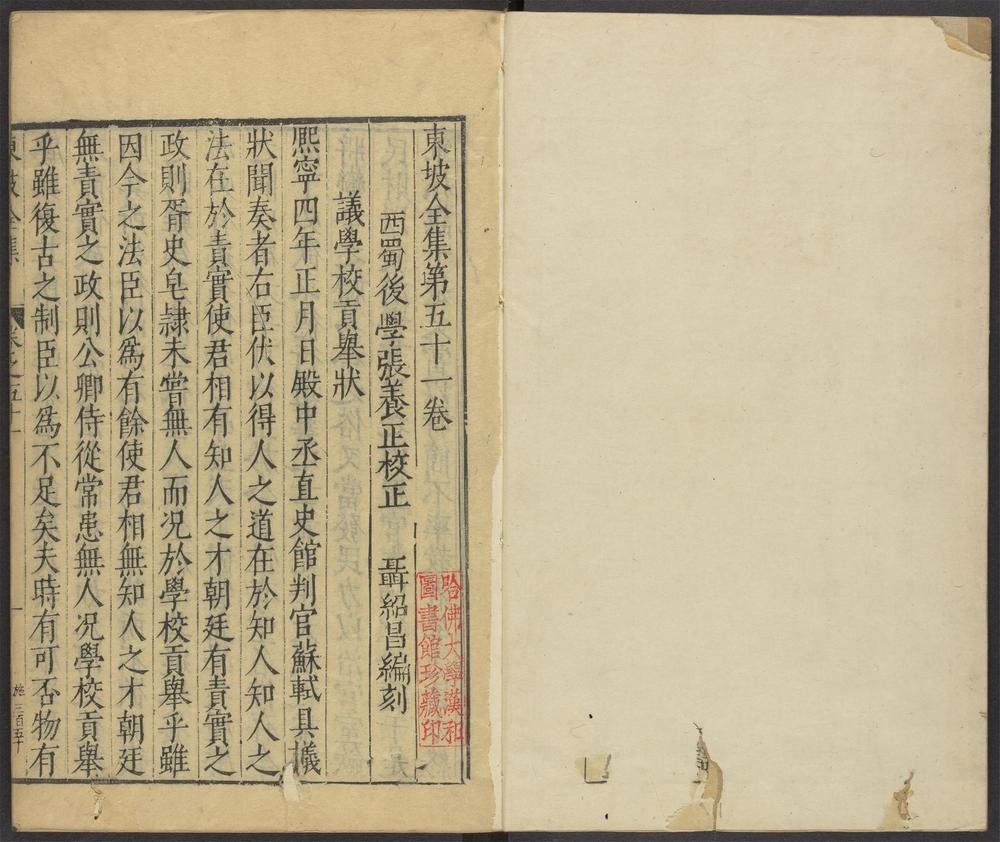 東坡全集第五十一卷
西蜀後學張養正校正 聶紹昌編刻
議學校貢舉狀
熙寧四年正月日殿中丞直史館判官蘇軾具議
狀聞奏者右臣伏以得人之道在於知人知人之
法在於責實使君相有知人之才朝廷有責實之
政則胥史皂隸未嘗無人而況於學校貢舉乎雖
因今之法臣以爲有餘使君相無知人之才朝廷
無責實之政則公卿侍從常患無人况學校貢舉
乎雖復古之制臣以爲不足矣夫時有可否物有
東坡全集 卷之五十一 一
施三百五十
哈佛大學漢和
圖書館珍藏印